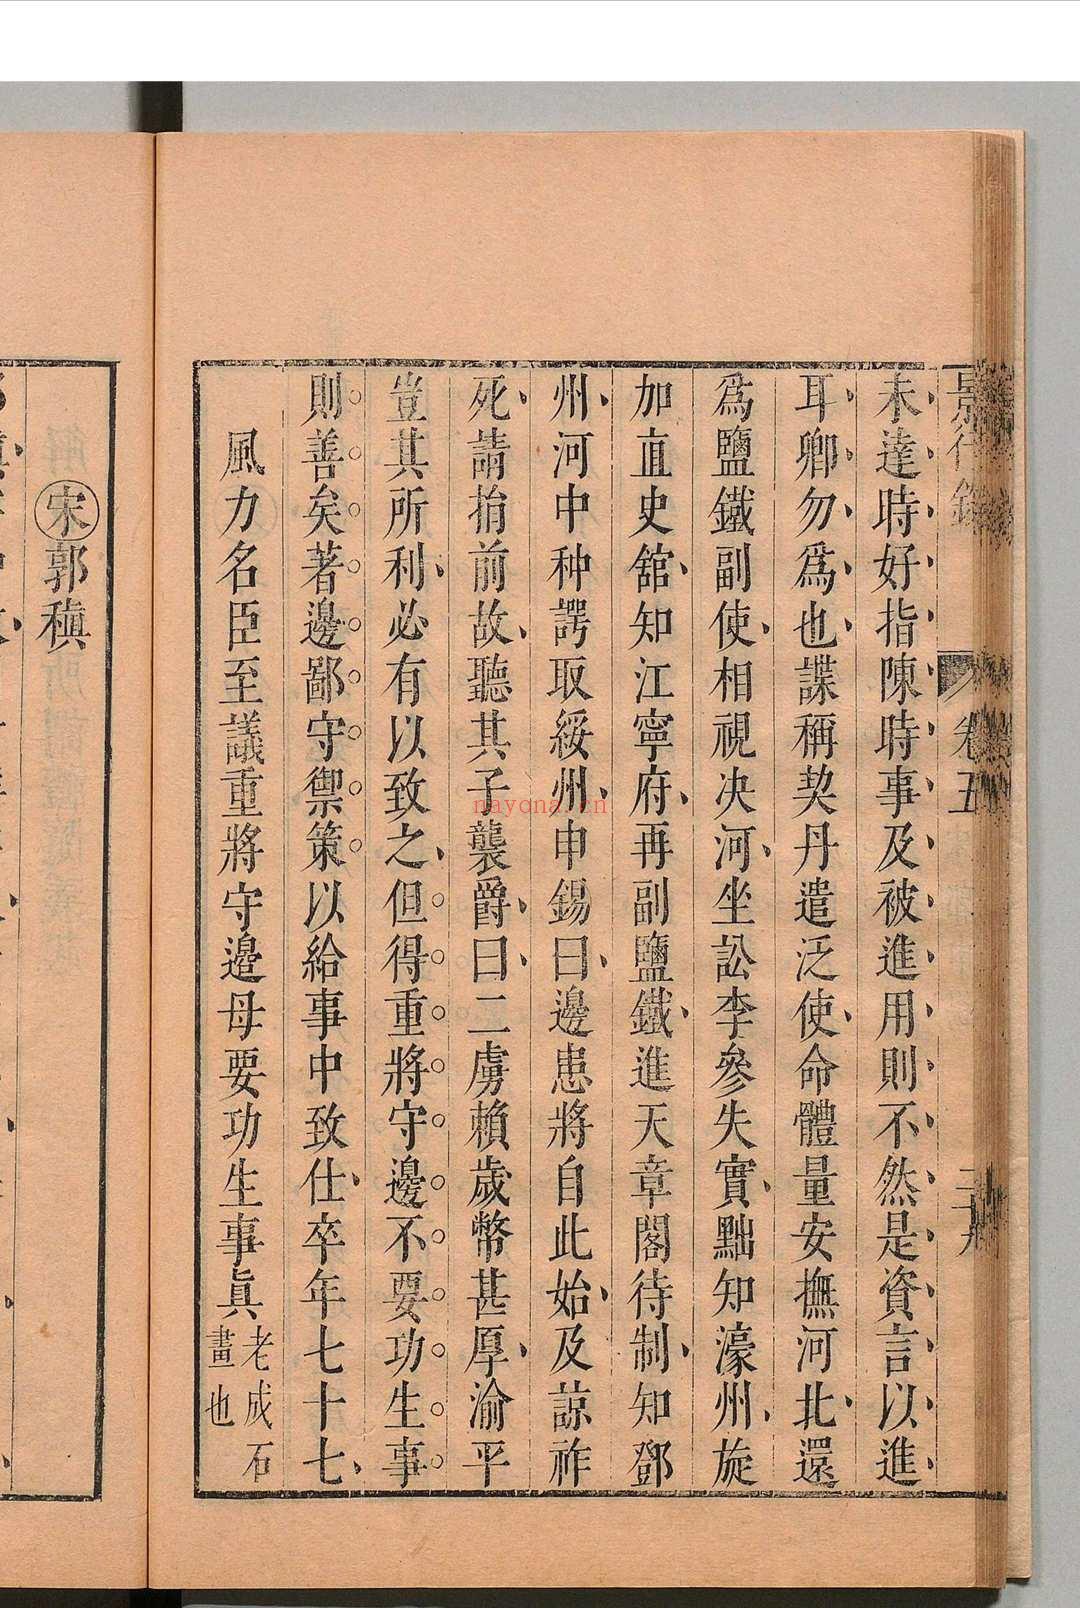 景行錄 卷五
未達時好指陳時事及被進用則不然是資言以進
耳卿勿爲也諜稱契丹遣泛使命體量安撫河北還
爲鹽鐵副使相視决河坐訟李參失實黜知濠州旋
加直史舘知江寧府再副鹽鐵進天章閣待制知鄧
州河中种諤取綏州申錫曰邊患將自此始及諒祚
死請捐前故聽其子襲爵曰二虜賴歲幣甚厚渝平
豈其所利必有以致之但得重將守邊不要功生事
則善矣著邊鄙守禦策以給事中致仕卒年七十七
風力名臣至議重將守邊母要功生事眞老成石畫也
宋郭稹
nayona.cn